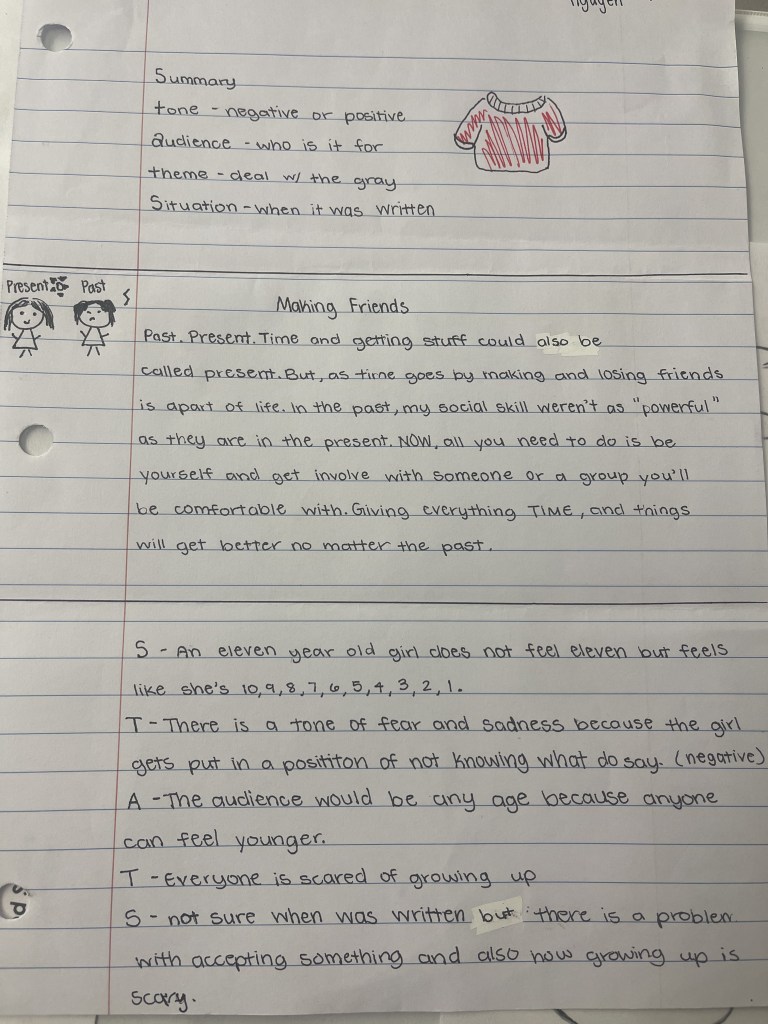 nguyen
Summary
tone - negative or positive
audience - who is it for
theme - deal w/ the gray
Situation - when it was written
Present Past
Making Friends
Past. Present. Time and getting stuff could also be
called present. But, as time goes by making and losing friends
is apart of life. In the past, my social skill weren't as "powerful"
as they are in the present. NOW, all you need to do is be
yourself and get involve with someone or a group you'll
be comfortable with. Giving everything TIME, and things
will get better no matter the past.
S - An eleven year old girl does not feel eleven but feels
like she's 10, 9, 8, 7, 6, 5, 4, 3, 2, 1.
T - There is a tone of fear and sadness because the girl
gets put in a posititon of not knowing what do say. (negative)
A - The audience would be any age because anyone
can feel younger.
T - Everyone is scared of growing up
S - not sure when was written but there is a problem
with accepting something and also how growing up is
scary.